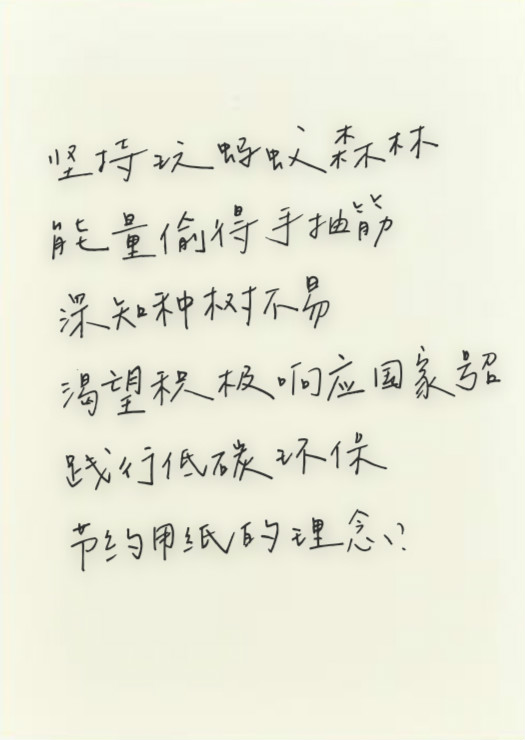 坚持玩蚂蚁森林
能量偷得手抽筋
深知种树不易
渴望积极响应国家号召
践行低碳环保
节约用纸的理念